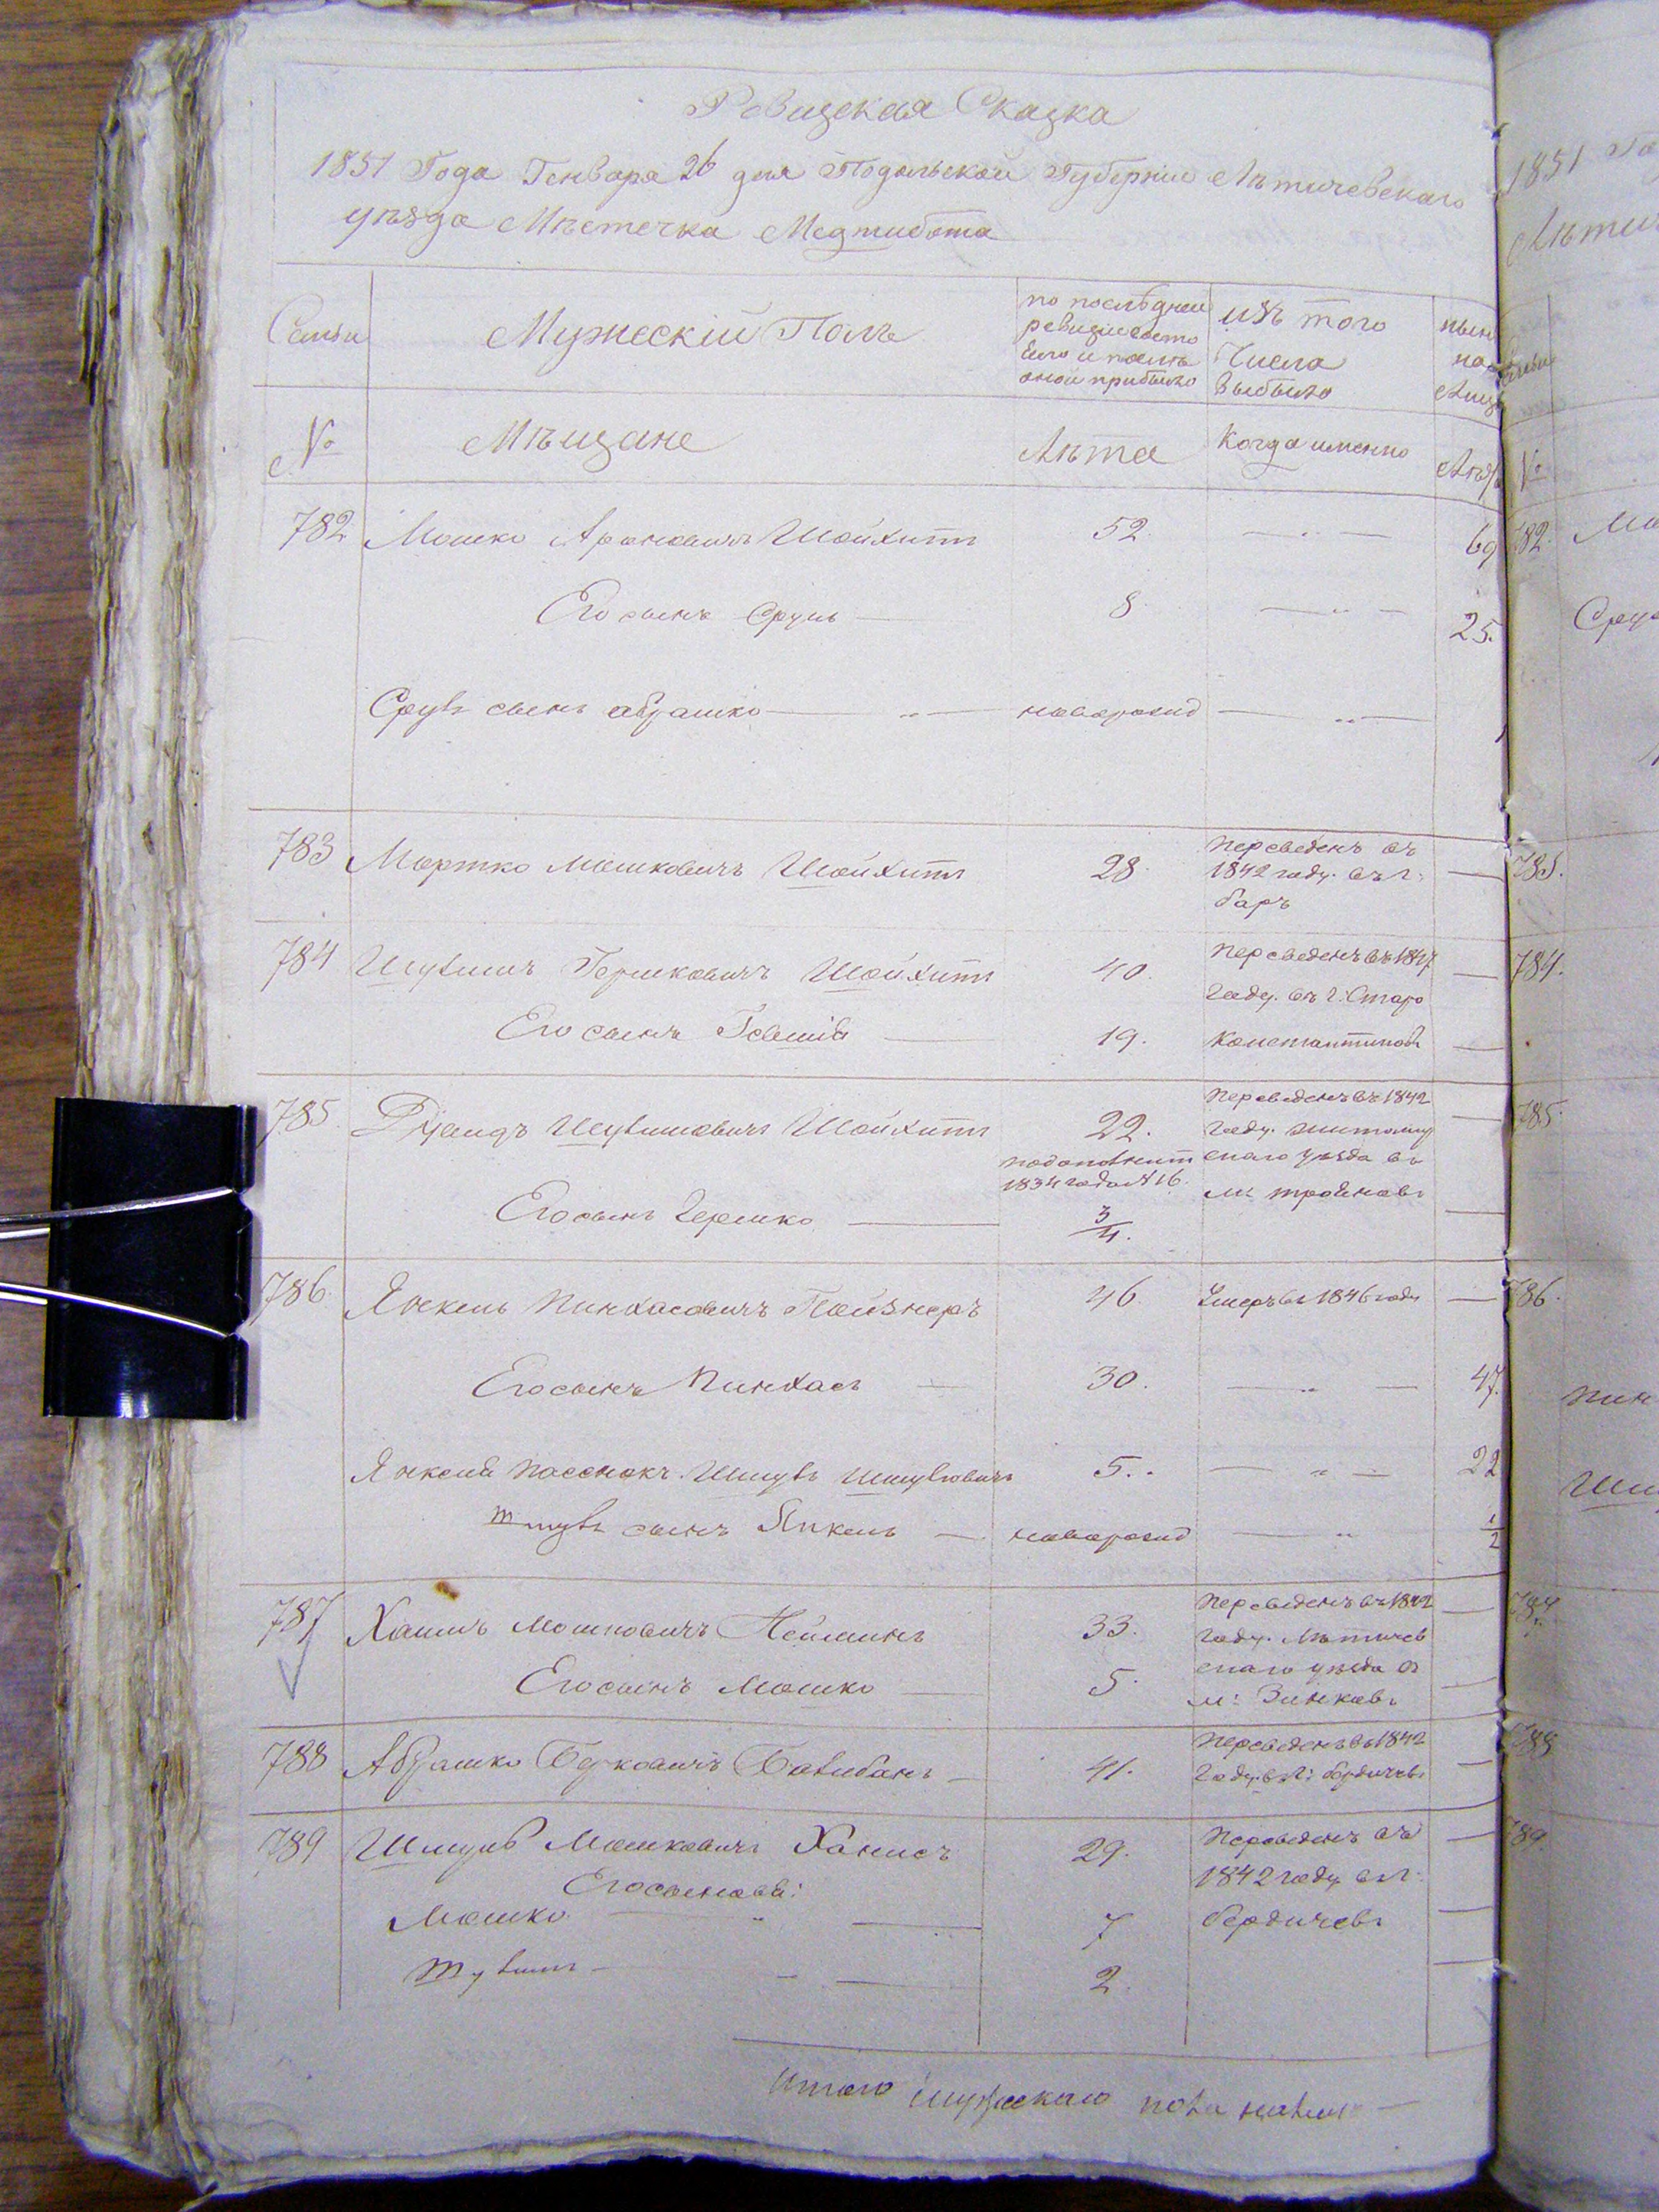 Ревизская Сказка
1851 Года Генваря 26 дня Подольской Губернии Лѣтичевскаго
уѣзда Мѣстечка Меджибожа
Семьи
Мужескій Полъ
по послѣдней
ревизіи состо
яло и послѣ
оной прибыло
изъ того
Числа
выбыло
нынѣ
на
Лиц
№
Мѣщане
Лѣта
Когда именно
Лѣта
782 Мошко Ароновичъ Шойхитъ 52. 69
Его сынъ Сруль 8 25.
Сруля сынъ Абрашко новорожд
783 Мортко Мошковичъ Шойхитъ 28. Переведенъ въ
1842 году. въ г:
баръ
784 Шулимъ Гершковичъ Шойхитъ 40. Переведенъ въ 1847
году. въ г: Старо
Его сынъ 19. Константиновъ
785 Шулимовичъ Шойхитъ 22. Переведенъ въ 1842
году. житомир
1834 года №16. скаго уѣзда въ
м:
Его сынъ Гершко 3/4.
786 Янкель Пинхасовичъ Пойзнеръ 46. Умеръ въ 1846 году
Его сынъ Пинхасъ 30. 47.
Янкеля пасенокъ Шмуль Шмулевичъ 5. 22
Шмуля сынъ Янкель новорожд 1/2
787 Хаимъ Мошковичъ Нейманъ 33. Переведенъ въ 1842
году. Лѣтичев
скаго уѣзда въ
Его сынъ Мошко 5. м: Зинковъ
788 Абрашко Берковичъ 41. Переведенъ въ 1842
году. въ г: бердичевъ
789 Шмуль Мошковичъ Ханисъ 29. Переведенъ въ
1842 году въ г:
Его сыновья:
Мошко 7 бердичевъ
Шулимъ 2.
Итого мужескаго пола налицо